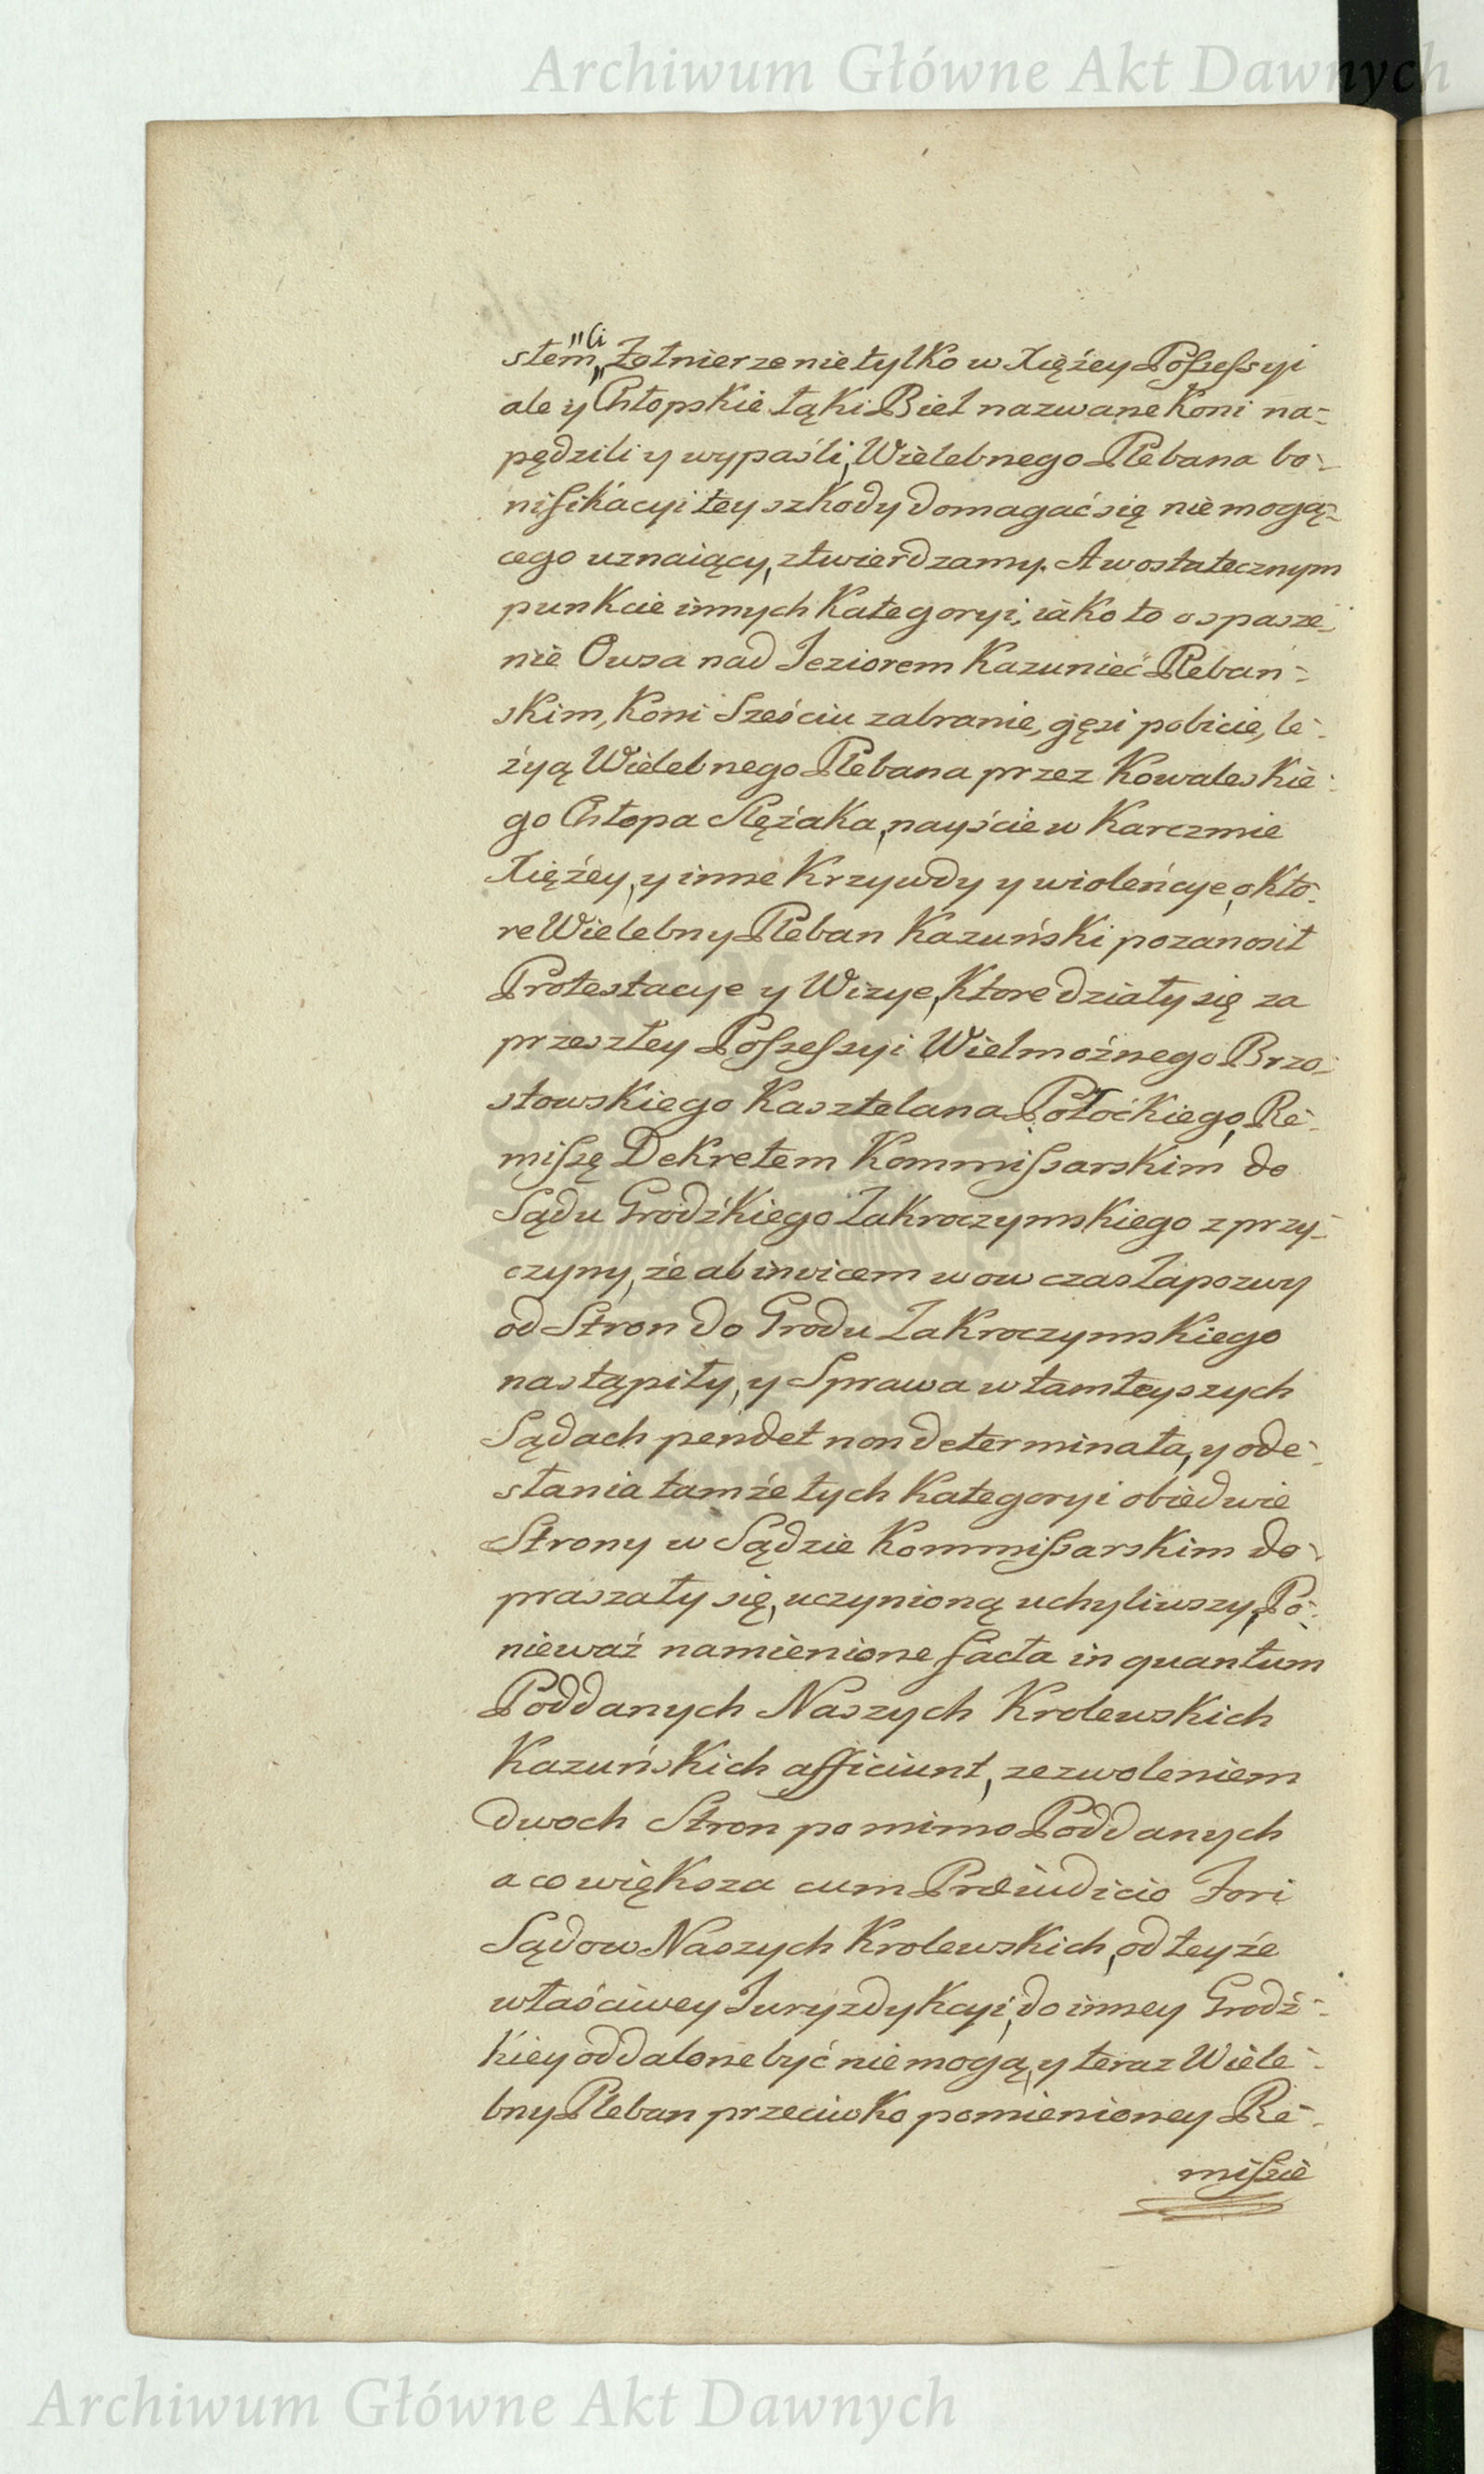 Archiwum Główne Akt Dawnych
stem "Ci" Zołnierze nie tylko w Xiężey Possessyi
ale y Chłopskie łąki Biel nazwane Koni na-
pędzili y wypaśli, Wielebnego Plebana bo-
nifikacyi tey szkody domagać się nie mogą-
cego uznaiący, ztwierdzamy. A w ostatecznym
punkcie innych Kategoryi, iako to o spasze-
nie Owsa nad Jeziorem Kazuniec Plebań-
skim, Koni Sześciu zabranie, gęsi pobicie, le-
żyą Wielebnego Plebana przez Kowaleskie-
go Chłopa Slężaka, nayście w Karczmie
Xiężey, y inne Krzywdy y wioleńcye, o kto-
re Wielebny Pleban Kazuński pozanosił
Protestacye y Wizye, Ktore działy się za
przeszłey Possessyi Wielmożnego Brzo-
stowskiego Kasztelana Połockiego, Re-
missę Dekretem Kommissarskim do
Sądu Grodzkiego Zakroczymskiego z przy-
czyny, że ab invicem w ow czas Zapozwy
od Stron do Grodu Zakroczymskiego
nastąpiły, y Sprawa w tamteyszych
Sądach pendet non determinata, y ode-
słania tamże tych Kategoryi obiedwie
Strony w Sądzie Kommissarskim do-
praszały się, uczynioną uchyliwszy, Po-
nieważ namienione facta in quantum
Poddanych Naszych Krolewskich
Kazuńskich afficiunt, zezwoleniem
dwoch Stron pomimo Poddanych
a co większa cum Præiudicio Fori
Sądow Naszych Krolewskich, od teyże
właściwey Juryzdykcyi, do inney Grodz-
kiey oddalone być nie mogą, y teraz Wiele-
bny Pleban przeciwko pomienioney Re-
missie
Archiwum Główne Akt Dawnych